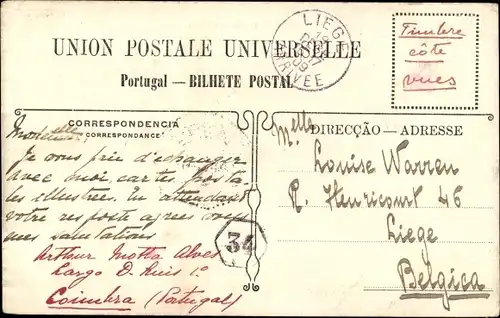 LIEGE
ARRIVEE
UNION POSTALE UNIVERSELLE
Portugal — BILHETE POSTAL
Timbre
côte
vues
CORRESPONDENCIA
CORRESPONDANCE
Je vous prie d'echanger
avec moi cartes posta-
les illustrées. En attendant
votre resposte agrees vous
mes salutations
Arthur Motta Alves
Largo D. Luis 1º
Coimbra (Portugal)
34
DIRECÇÃO — ADRESSE
Melle
Louise Warren
R. Henricourt 46
Liege
Belgica